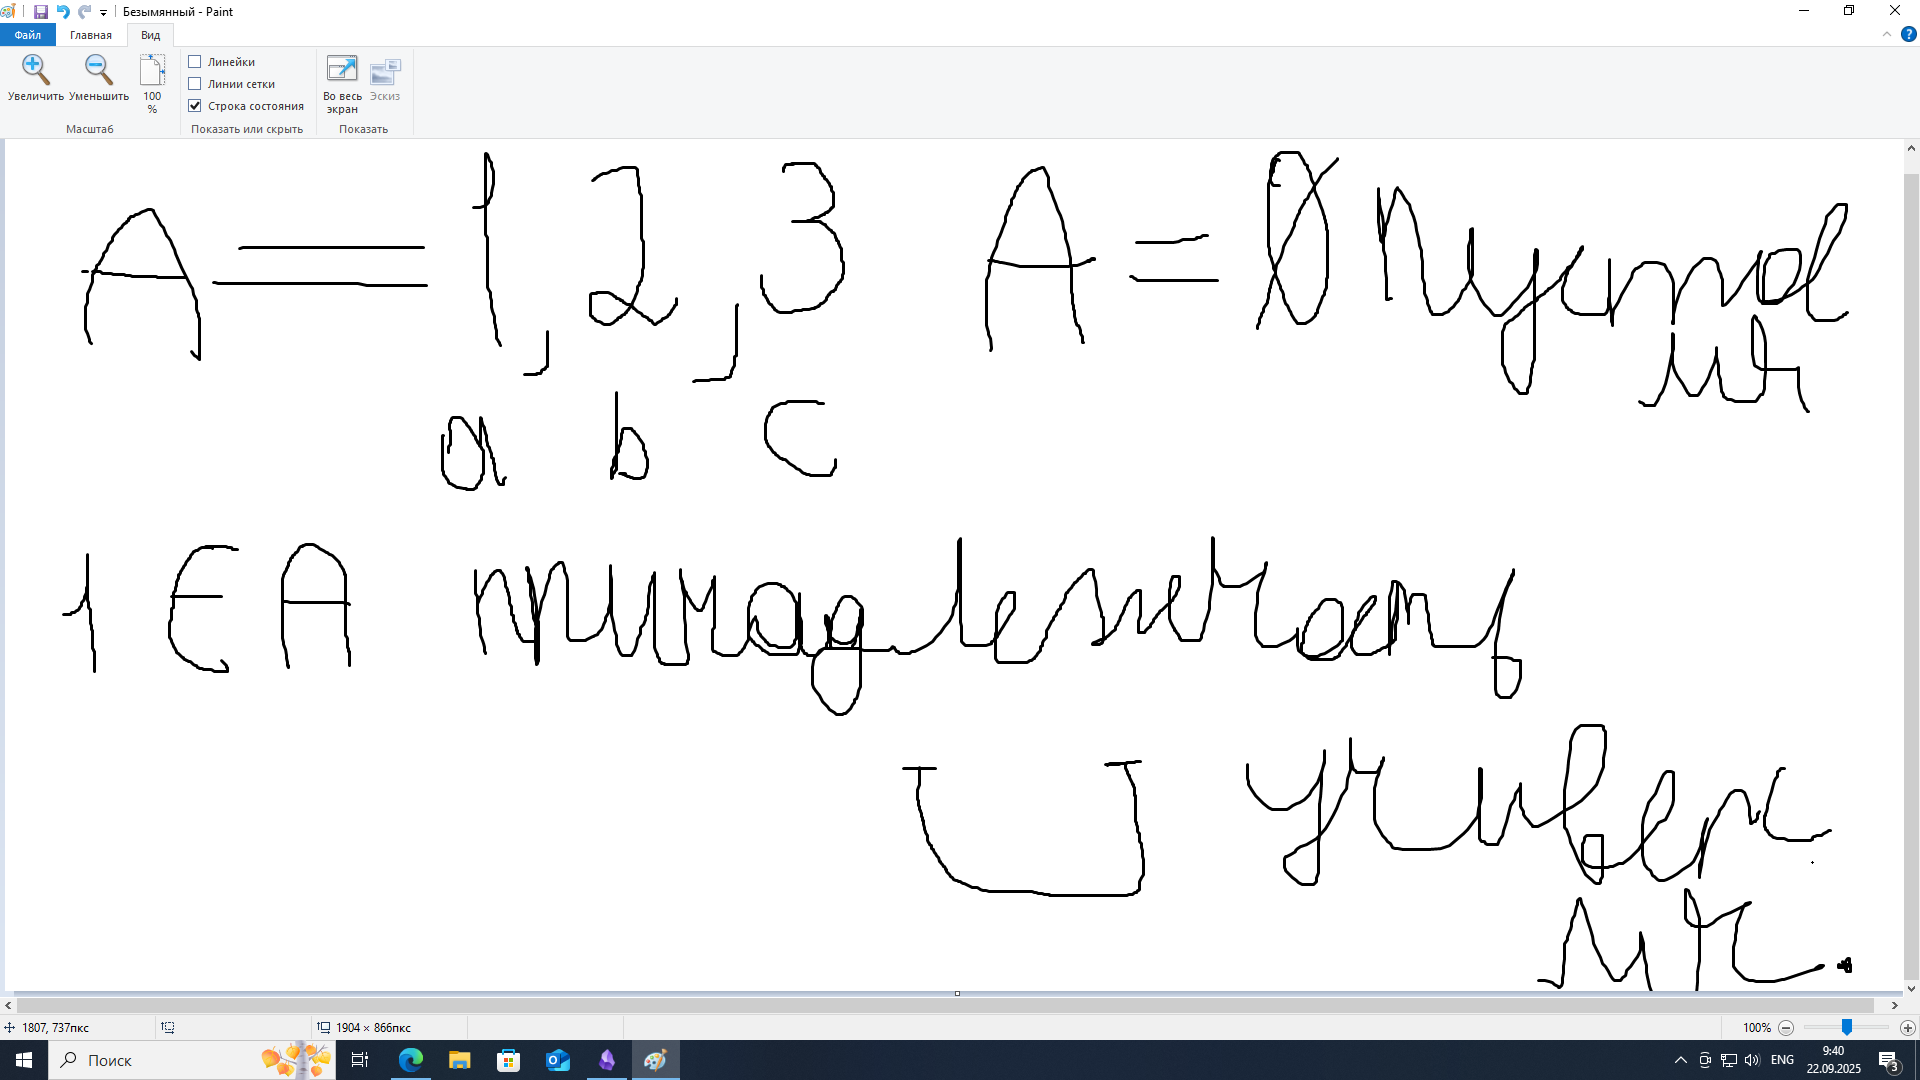 Безымянный - Paint
Файл Главная Вид
Увеличить Уменьшить 100 % Масштаб
Линейки
Линии сетки
Строка состояния
Показать или скрыть
Во весь экран Эскиз
Показать
A = 1, 2, 3 A = ∅ пустое
мн
a b c
1 ∈ A принадлежность
U универс
мн.
1807, 737пкс 1904 × 866пкс 100%
Поиск ENG 9:40
22.09.2025 3